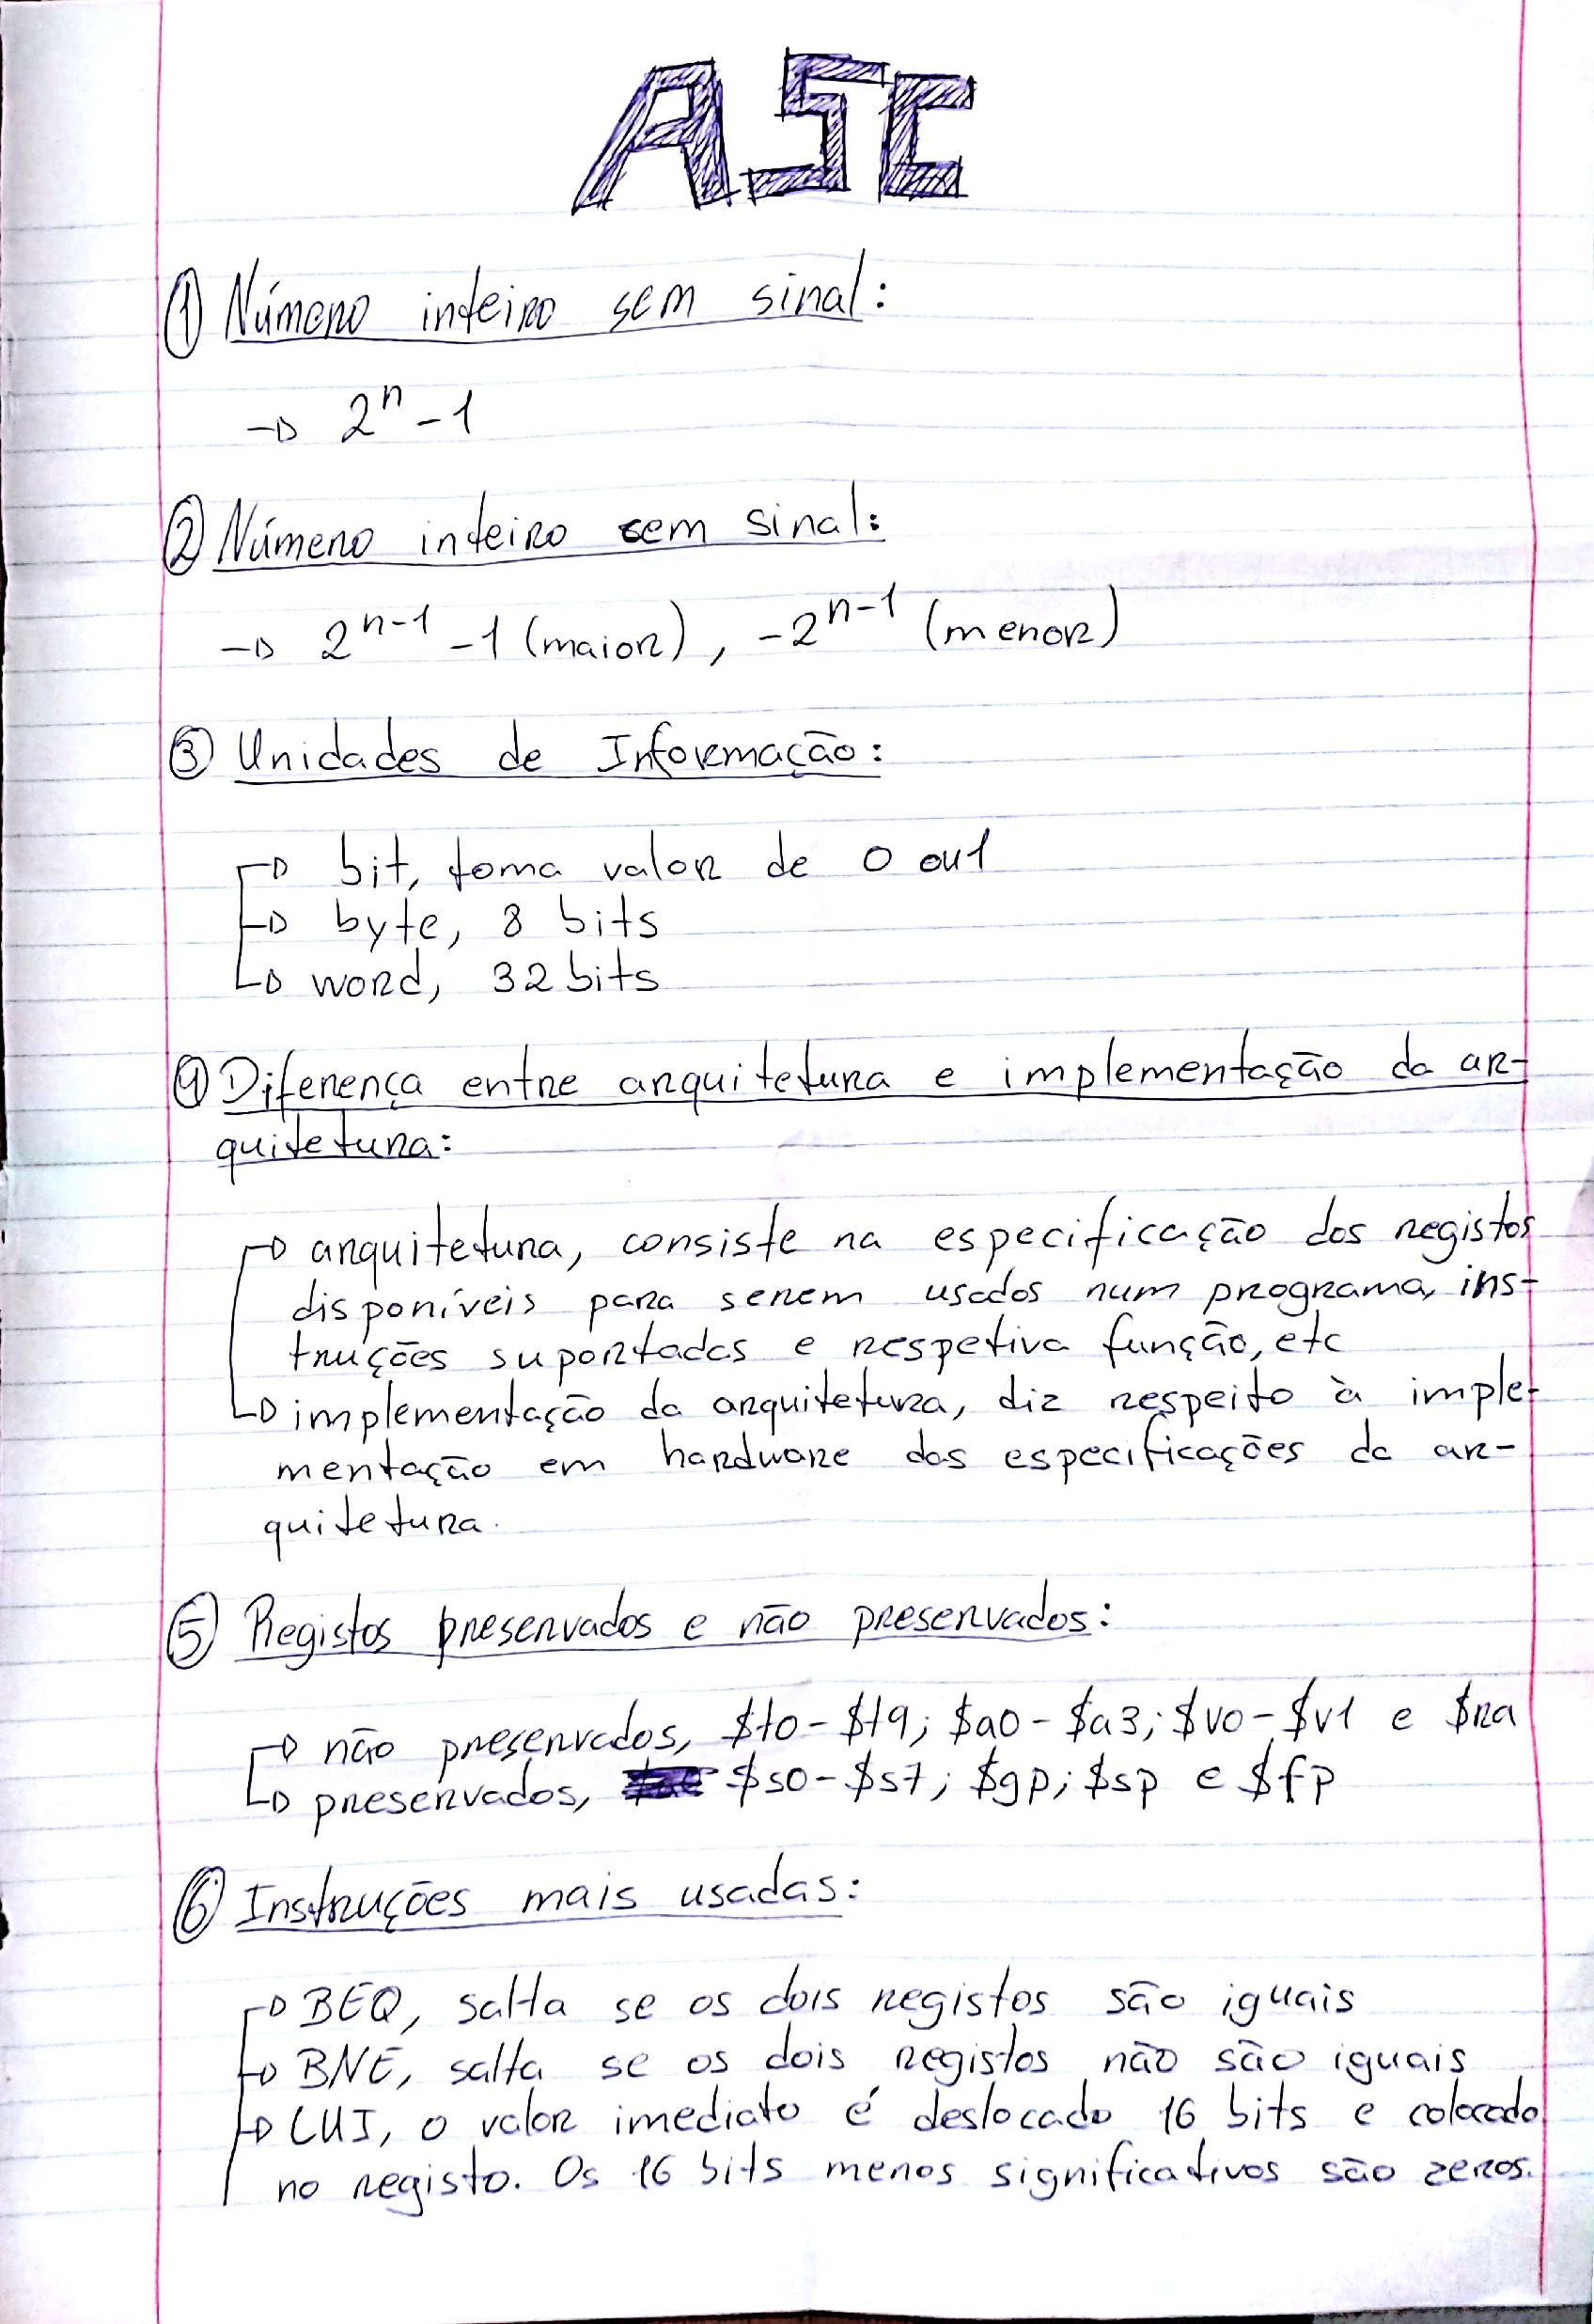 ASC
① Número inteiro sem sinal:
→ 2ⁿ - 1
② Número inteiro sem sinal:
→ 2ⁿ⁻¹ - 1 (maior), -2ⁿ⁻¹ (menor)
③ Unidades de Informação:
→ bit, toma valor de 0 ou 1
→ byte, 8 bits
→ word, 32 bits
④ Diferença entre arquitetura e implementação da ar-
quitetura:
→ arquitetura, consiste na especificação dos registos
disponíveis para serem usados num programa, ins-
truções suportadas e respetiva função, etc
→ implementação da arquitetura, diz respeito à imple-
mentação em hardware das especificações da ar-
quitetura.
⑤ Registos preservados e não preservados:
→ não preservados, $t0-$t9; $a0-$a3; $v0-$v1 e $ra
→ preservados, $s0-$s7; $gp; $sp e $fp
⑥ Instruções mais usadas:
→ BEQ, salta se os dois registos são iguais
→ BNE, salta se os dois registos não são iguais
→ LUI, o valor imediato é deslocado 16 bits e colocado
no registo. Os 16 bits menos significativos são zeros.